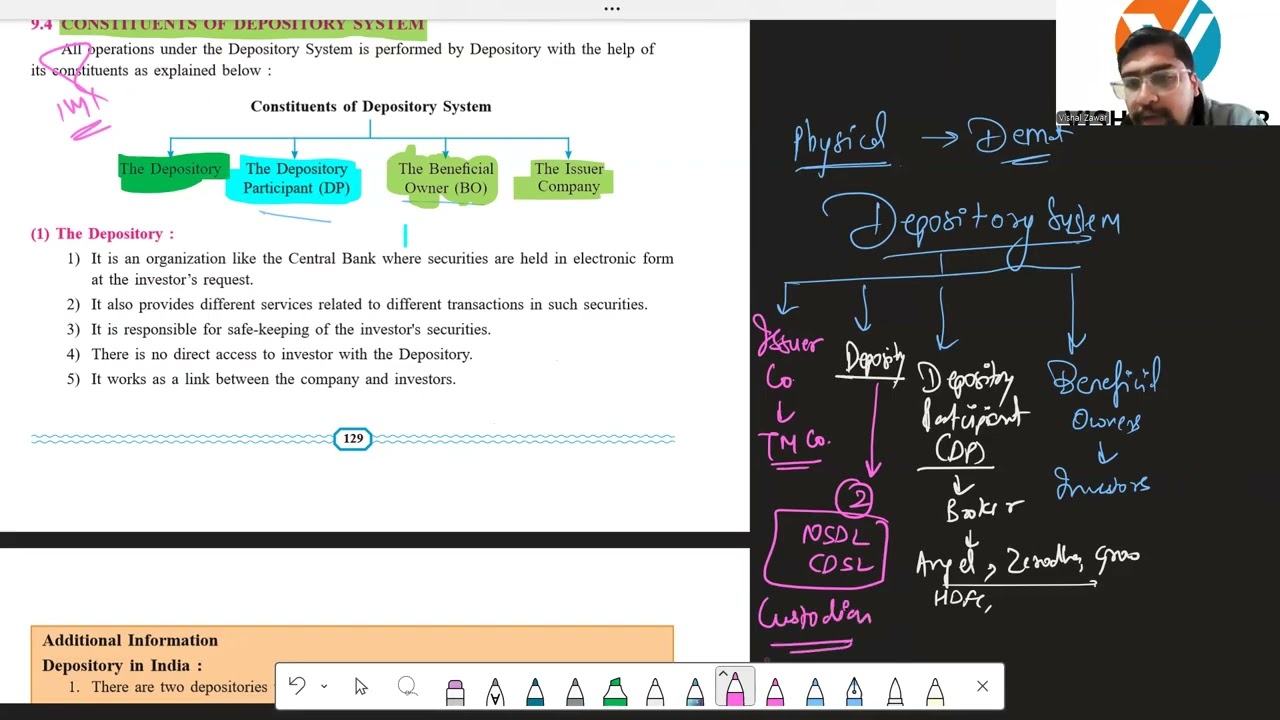 ...
9.4 CONSTITUENTS OF DEPOSITORY SYSTEM
All operations under the Depository System is performed by Depository with the help of
its constituents as explained below :
IMX
Constituents of Depository System
The Depository
The Depository
Participant (DP)
The Beneficial
Owner (BO)
The Issuer
Company
(1) The Depository :
1) It is an organization like the Central Bank where securities are held in electronic form
at the investor's request.
2) It also provides different services related to different transactions in such securities.
3) It is responsible for safe-keeping of the investor's securities.
4) There is no direct access to investor with the Depository.
5) It works as a link between the company and investors.
129
Additional Information
Depository in India :
1. There are two depositories
Vishal Zawar
Physical → Demat
Depository System
Issuer
Co.
TM Co.
Deposity
2
NSDL
CDSL
Custodian
Depository
Participant
(DP)
Broker
Angel, Zerodha, Grow
HDFC,
Beneficial
Owners
Investors